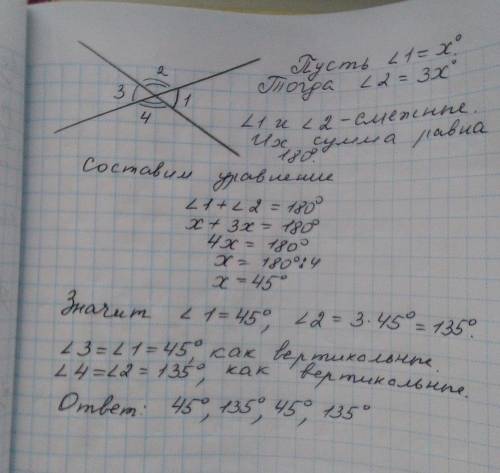 2
3
1
4
Пусть ∠1 = x°
Тогда ∠2 = 3x°
∠1 и ∠2 - смежные.
Их сумма равна
180°.
Составим уравнение
∠1 + ∠2 = 180°
x + 3x = 180°
4x = 180°
x = 180°:4
x = 45°
Значит ∠1 = 45°, ∠2 = 3·45° = 135°.
∠3 = ∠1 = 45°, как вертикольные.
∠4 = ∠2 = 135°, как вертикольные.
Ответ: 45°, 135°, 45°, 135°